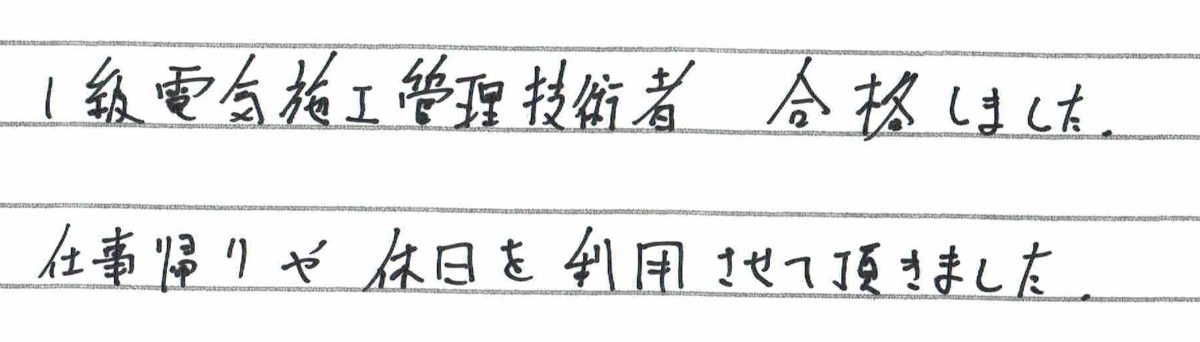 1級電気施工管理技術者 合格しました.
仕事帰りや 休日を利用させて頂きました.